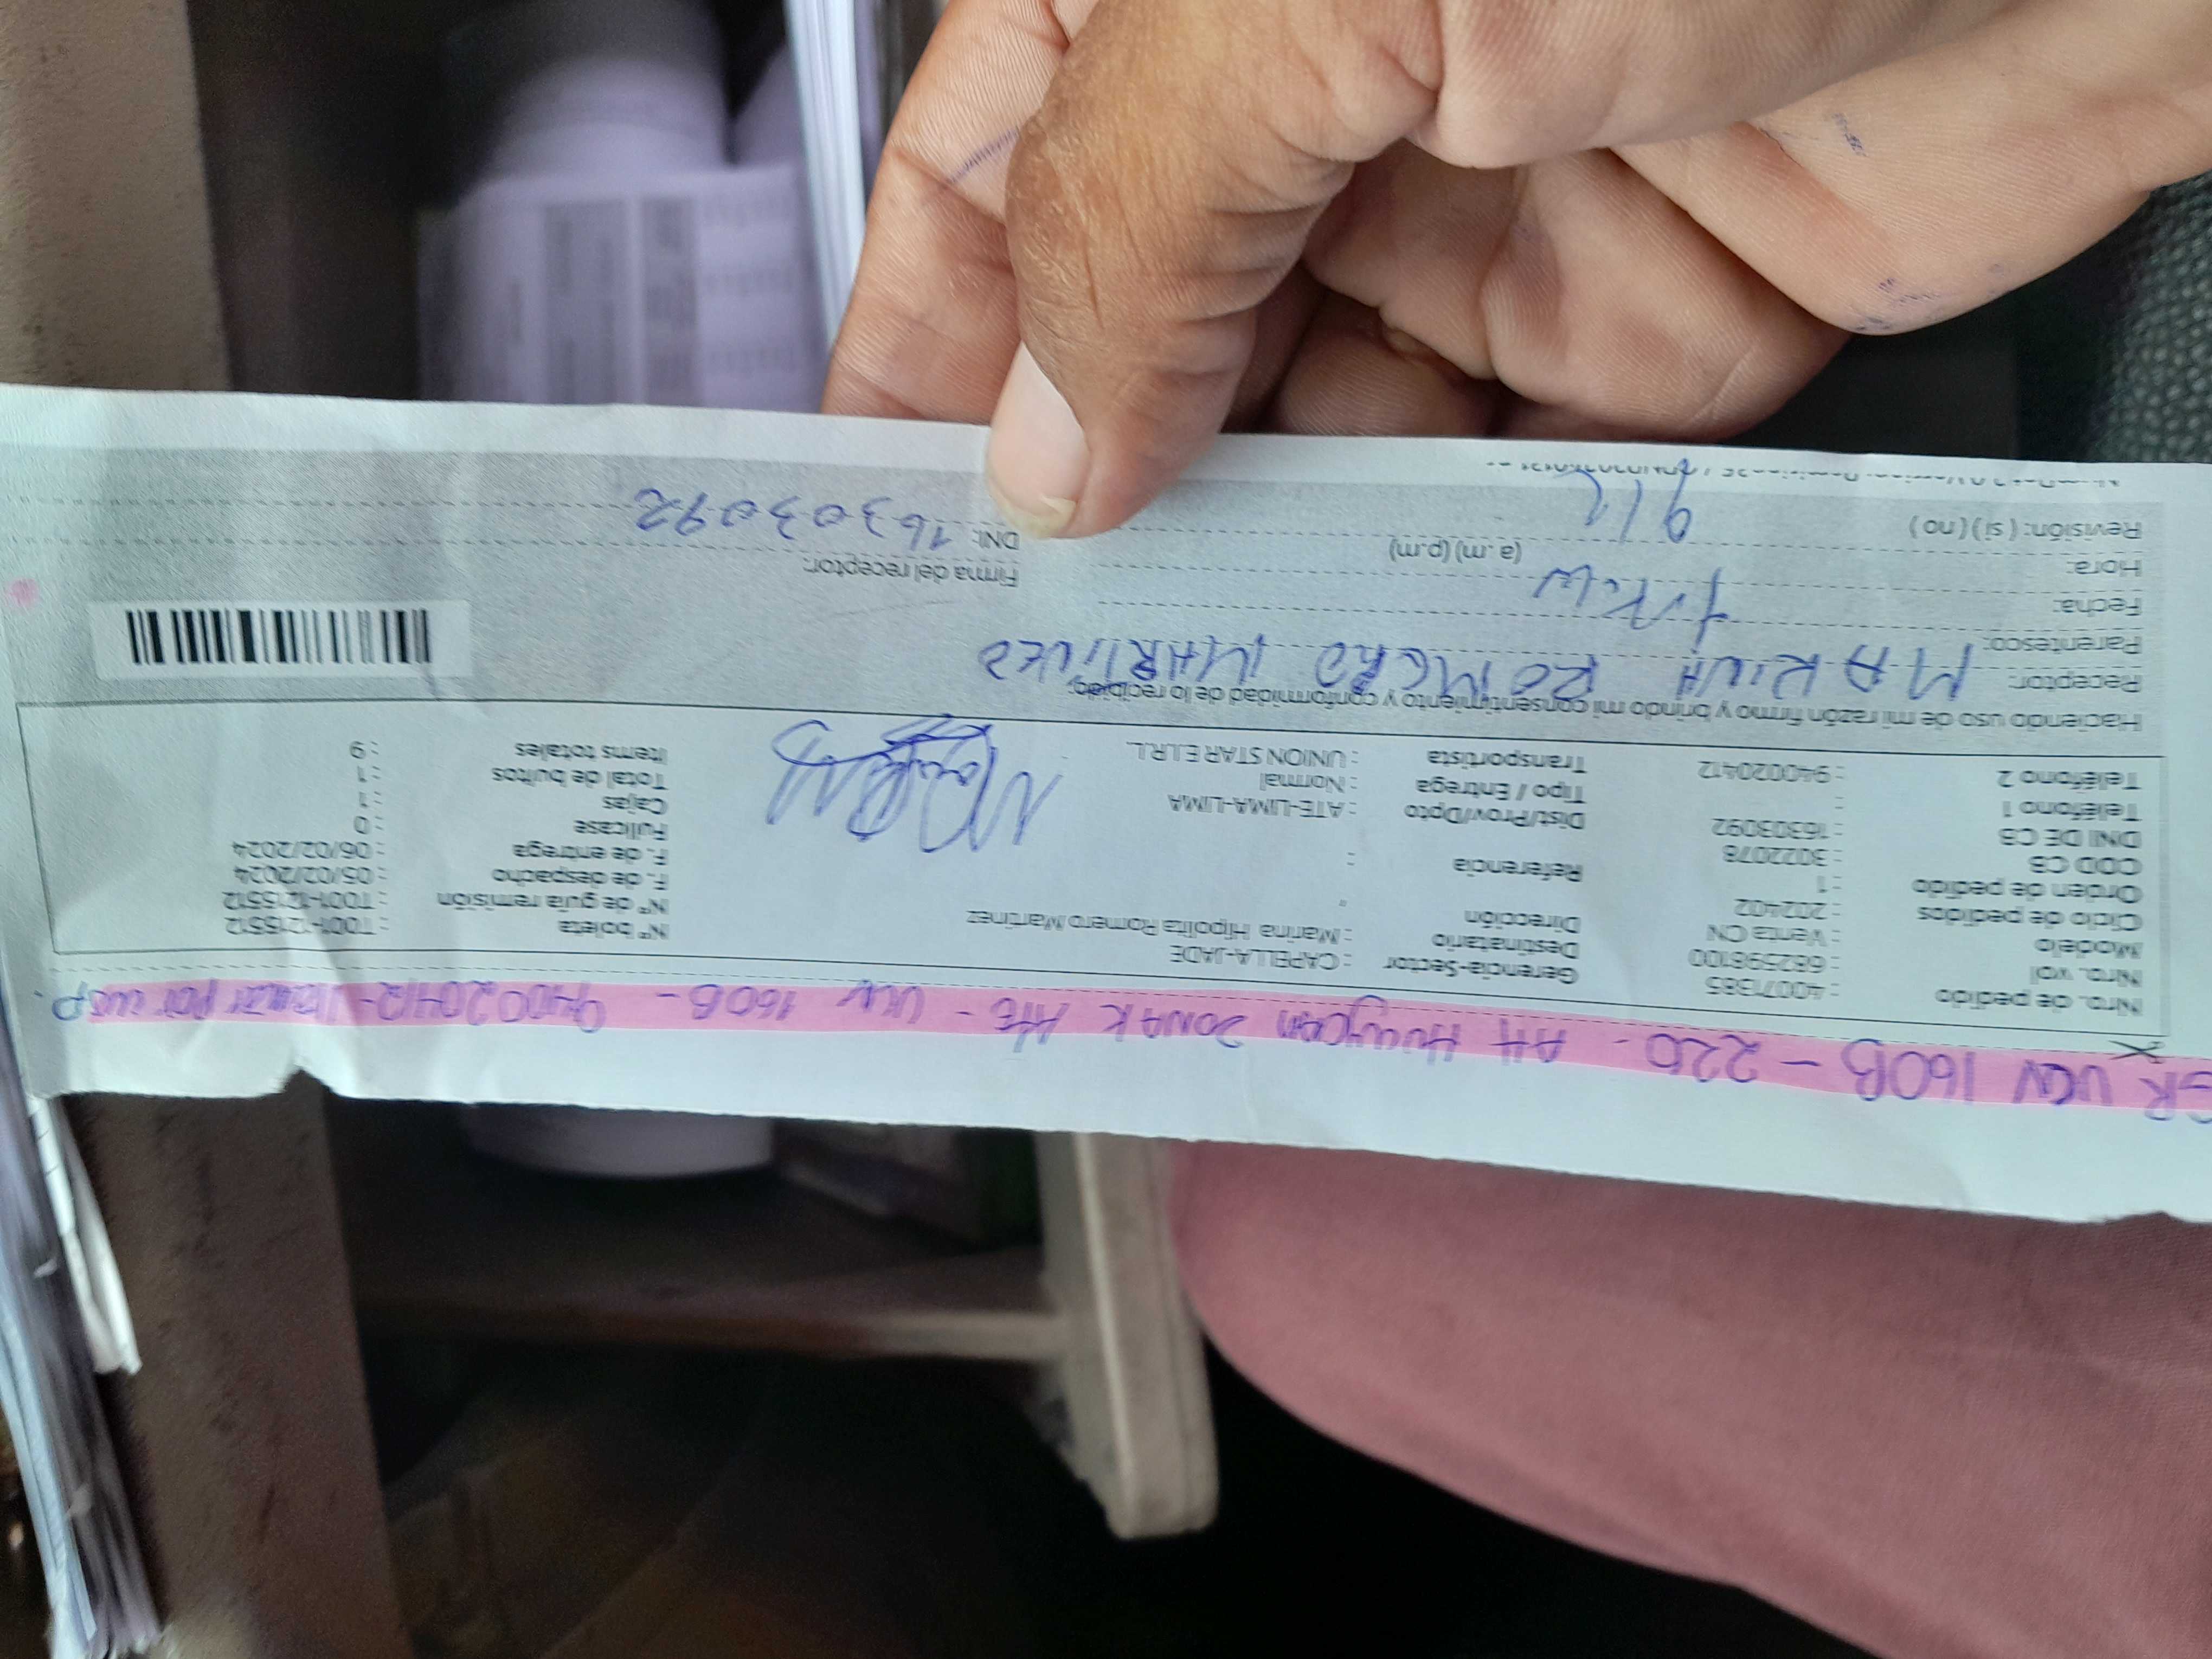 UCV 160B - 220 - AH Huaycan ZONA K Ate - UCV 160B - 940020412 - Llamar por wsp.
Nro. de pedido : 40071385 Gerencia-Sector : CAPELLA-JADE N° boleta : T001-1215512
Nro. wol : 682598100 Destinatario : Marina Hipolita Romero Martinez N° de guía remisión : T001-1215512
Modelo : Venta CN Dirección F. de despacho : 05/02/2024
Ciclo de pedidos : 202402 F. de entrega : 06/02/2024
Orden de pedido : 1 Referencia : Fullcase : 0
COD CB : 3022078 Dist/Prov/Dpto : ATE-LIMA-LIMA Cajas : 1
DNI DE CB : 16303092 Tipo / Entrega : Normal Total de bultos : 1
Teléfono 1 : Transportista : UNION STAR E.I.R.L. Items totales : 9
Teléfono 2 : 940020412
Haciendo uso de mi razón firmo y brindo mi consentimiento y conformidad de lo recibido:
Receptor: MARINA ROMERO MARTINEZ
Parentesco:
Fecha:
Hora: (a.m) (p.m) Firma del receptor:
Revisión: ( si ) ( no ) DNI: 16303092